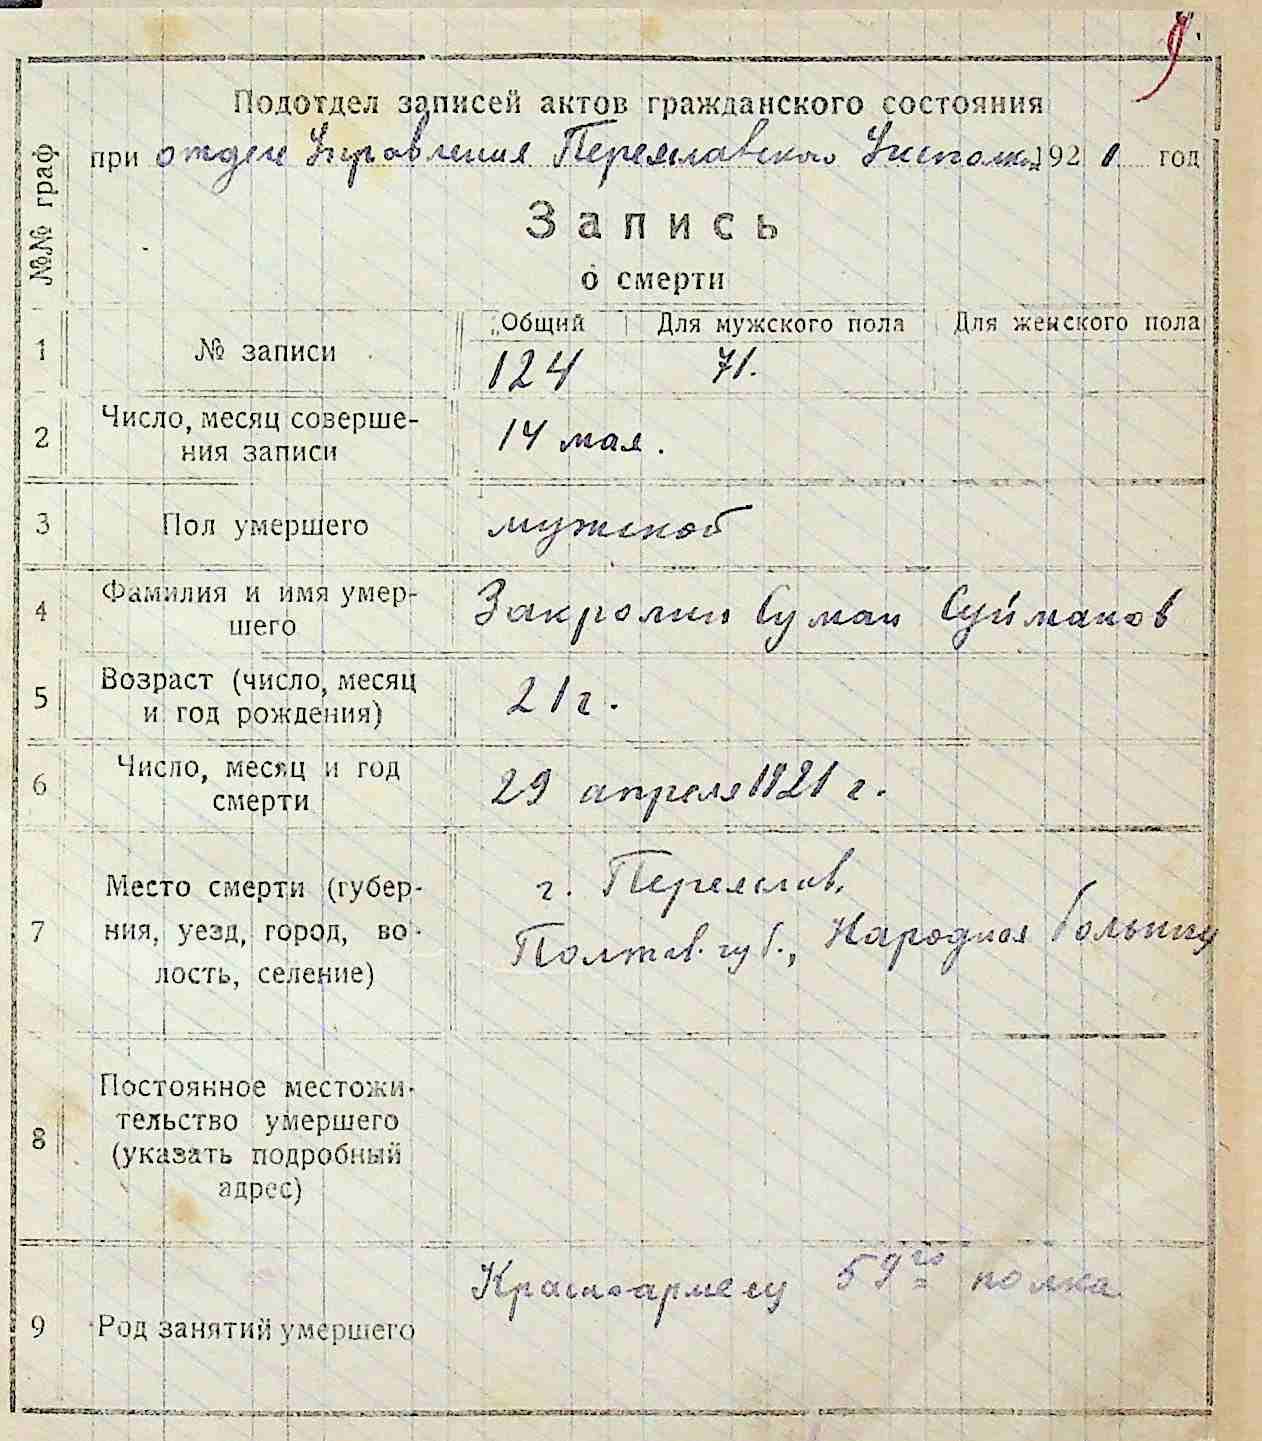 9.
Подотдел записей актов гражданского состояния
при отделе Управления Переяславского Исполком. 1921 год
№№ граф
Запись
о смерти
Общий Для мужского пола Для женского пола
1 № записи 124 71.
2 Число, месяц соверше-
ния записи 14 мая.
3 Пол умершего мужской
4 Фамилия и имя умер-
шего Закролин Суман Суйманов
5 Возраст (число, месяц
и год рождения) 21 г.
6 Число, месяц и год
смерти 29 апреля 1921 г.
7 Место смерти (губер-
ния, уезд, город, во-
лость, селение)
г. Переяслав,
Полтав. губ., Народная больница
8 Постоянное местожи-
тельство умершего
(указать подробный
адрес)
9 Род занятий умершего
Красноармеец 59го полка